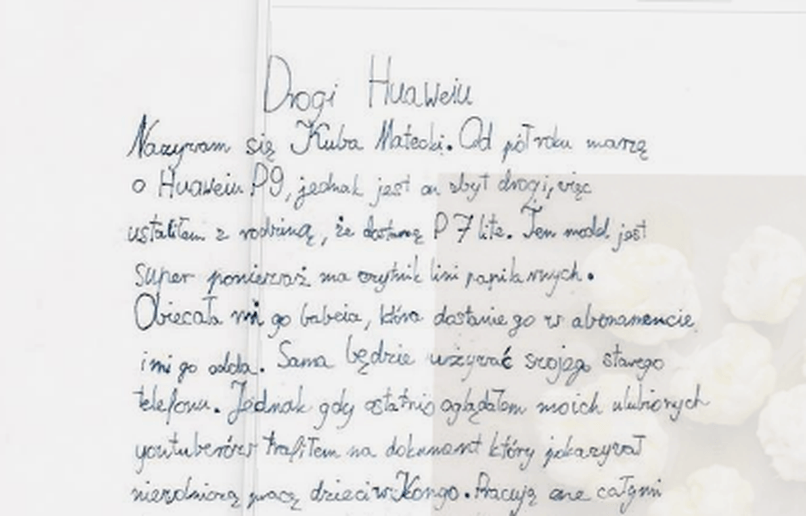 Drogi Huaweiu
Nazywam się Kuba Matecki. Od pół roku marzę
o Huaweiu P9, jednak jest on zbyt drogi, więc
ustaliłem z rodziną, że dostanę P7 lite. Ten model jest
super ponieważ ma czytnik lini papilarnych.
Obiecała mi go babcia, która dostanie go w abonamencie
i mi go odda. Sama będzie używać swojego starego
telefonu. Jednak gdy ostatnio oglądałem moich ulubionych
youtuberów trafiłem na dokument który pokazywał
niewolniczą pracę dzieci w Kongo. Pracują one całymi